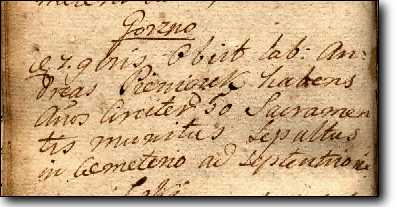 Gorzno
Obiit lab: An=
dreas Pieniozek habens
Años Circiter 50 Sacramen
tis munitus Sepultus
in Cemeterio ad Septentrione